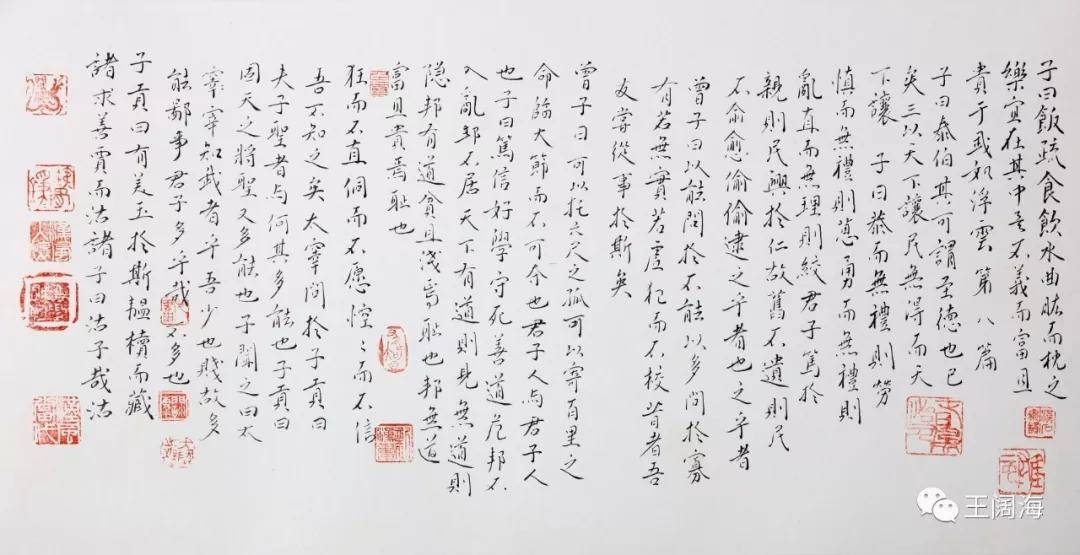 子曰飯疏食飲水曲肱而枕之
樂宜在其中矣不義而富且
貴于我如浮雲 第八篇
子曰泰伯其可謂至德也已
矣三以天下讓民無得而天
下讓 子曰恭而無禮則勞
慎而無禮則葸勇而無禮則
亂直而無理則絞君子篤於
親則民興於仁故舊不遺則民
不偷愈偷逮之乎者也之乎者
曾子曰以能問於不能以多問於寡
有若無實若虛犯而不校昔者吾
友嘗從事於斯矣
曾子曰可以托六尺之孤可以寄百里之
命臨大節而不可夺也君子人与君子人
也子曰篤信好學守死善道危邦不
入亂邦不居天下有道則見無道則
隐邦有道貧且浅焉耻也邦無道
富且貴焉耻也
狂而不直侗而不愿悾〻而不信
吾不知之矣太宰問於子貢曰
夫子聖者与何其多能也子貢曰
固天之將聖又多能也子聞之曰太
宰宰知我者乎吾少也賤故多
能鄙事君子多乎哉不多也
子貢曰有美玉於斯韞櫝而藏
諸求善賈而沽諸子曰沽子哉沽
王阔海